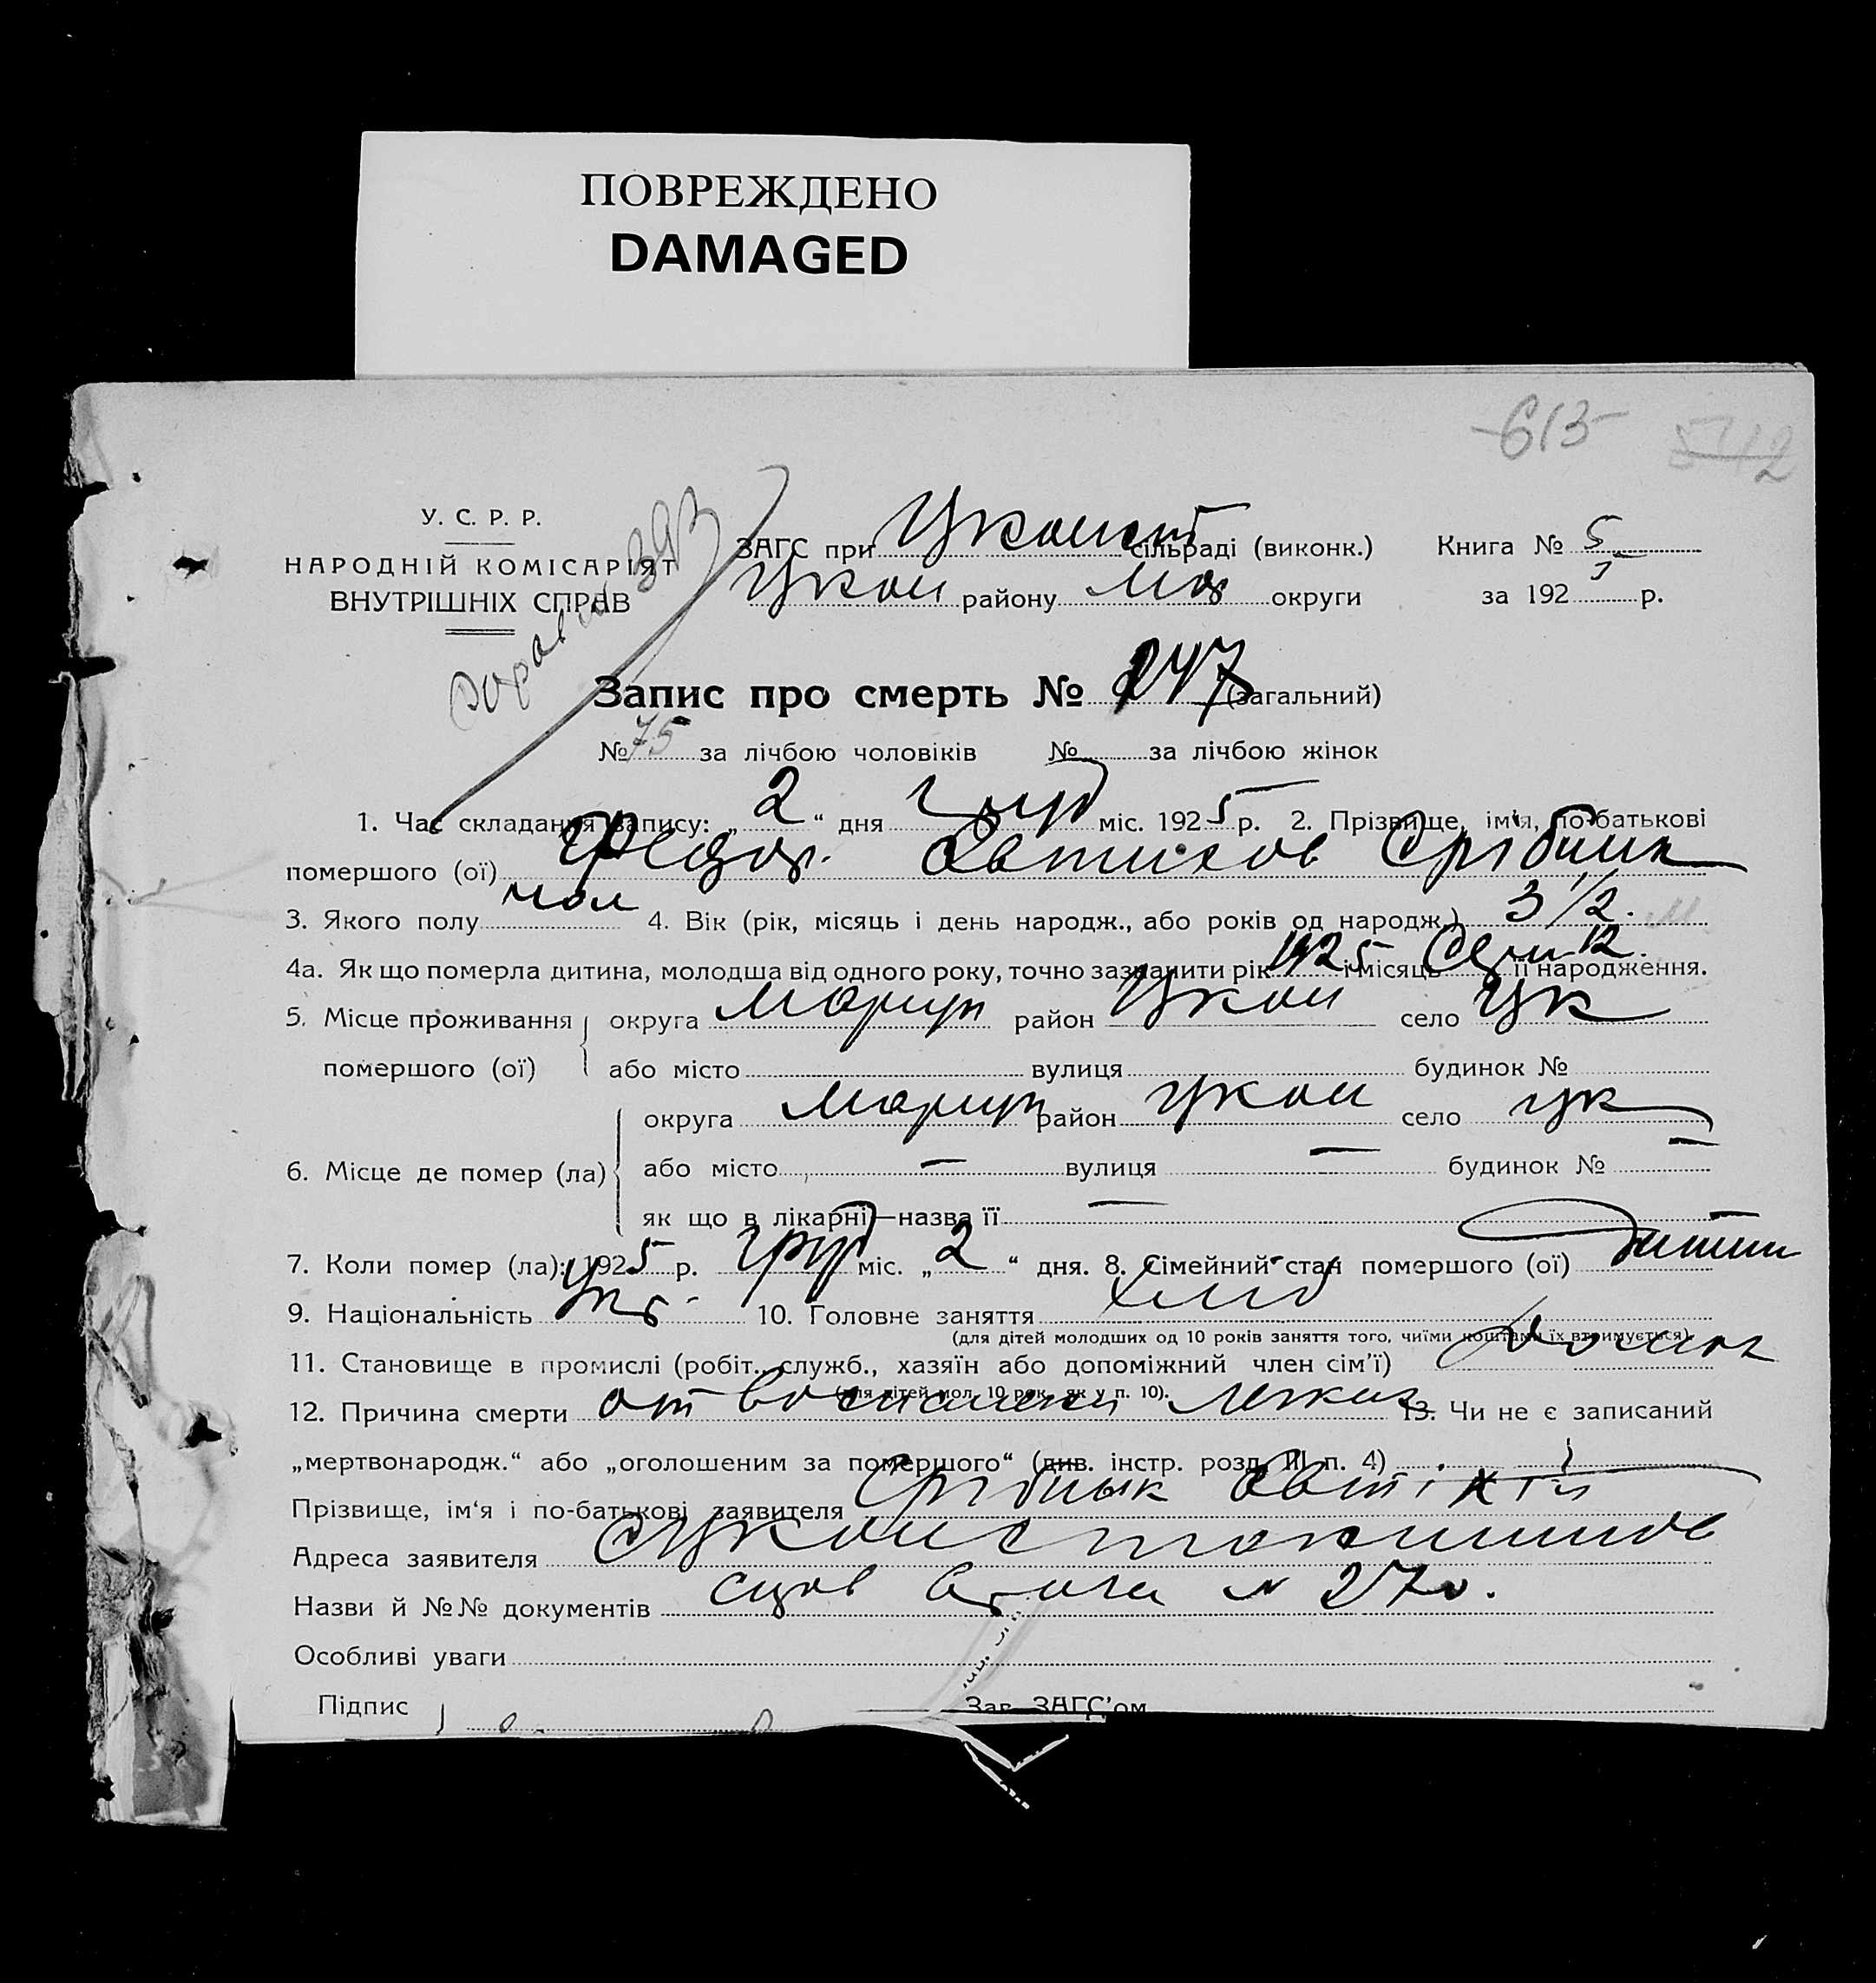 ПОВРЕЖДЕНО
DAMAGED
-613- 542
У. С. Р. Р.
НАРОДНІЙ КОМІСАРІЯТ
ВНУТРІШНІХ СПРАВ
ЗАГС при сільраді (виконк.) Книга № 5
Цкои району Мар округи за 1925 р.
Запис про смерть № 247 (загальний)
№ 75 за лічбою чоловіків № за лічбою жінок
1. Час складання запису: „ 2 “ дня груд міс. 1925 р. 2. Прізвище, ім'я, по-батькові
помершого (ої) Федор. Автихов Срібник
3. Якого полу чол 4. Вік (рік, місяць і день народж., або років од народж.) 3 1/2. м
4а. Як що померла дитина, молодша від одного року, точно зазначити рік 1925 і місяць 12. її народження.
5. Місце проживання округа Мариуп район Цкои село Цк
помершого (ої) або місто вулиця будинок №
округа Мариуп район Цкои село Цк
6. Місце де помер (ла) або місто — вулиця — будинок № —
як що в лікарні—назва її —
7. Коли помер (ла): 1925 р. груд міс. „ 2 “ дня. 8. Сімейний стан помершого (ої) дитин
9. Національність Укр. 10. Головне заняття хліб
(для дітей молодших од 10 років заняття того, чиїми коштами їх втримується).
11. Становище в промислі (робіт., служб., хазяїн або допоміжний член сім'ї)
(для дітей мол. 10 рок. як у п. 10).
12. Причина смерти от воспалени легких 13. Чи не є записаний
„мертвонародж.“ або „оголошеним за помершого“ (див. інстр. розд. III п. 4)
Прізвище, ім'я і по-батькові заявителя Срібнык Автіхій
Адреса заявителя
Назви й №№ документів № 270.
Особливі уваги
Підпис Зав. ЗАГС'ом